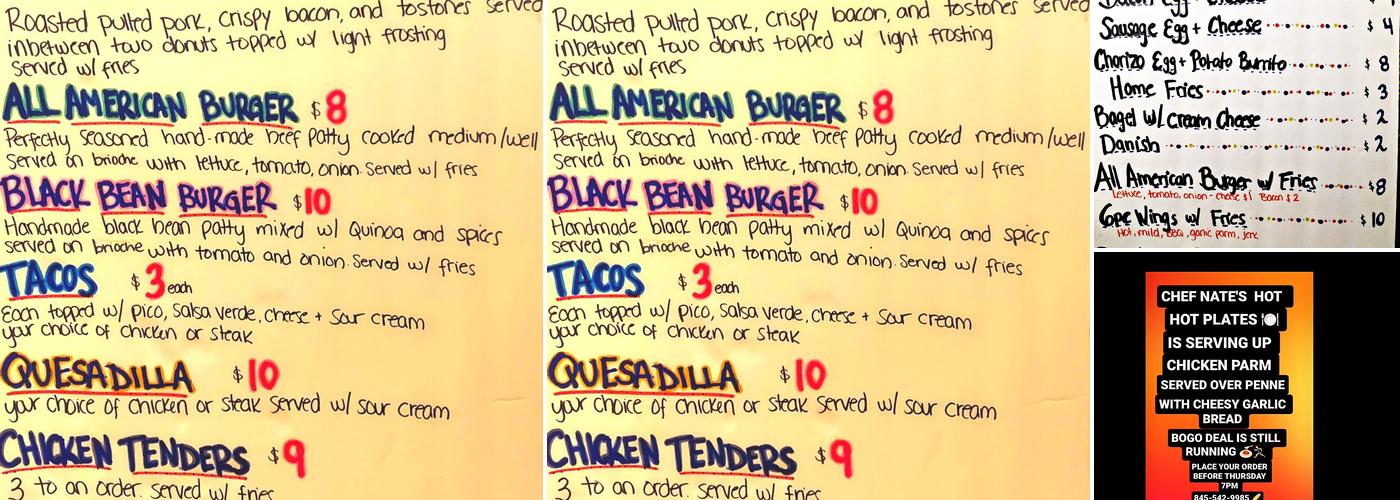 Roasted pulled pork, crispy bacon, and tostones served
inbetween two donuts topped w/ light frosting
served w/ fries
ALL AMERICAN BURGER $8
Perfectly seasoned hand-made beef patty cooked medium/well
served on brioche with lettuce, tomato, onion. Served w/ fries
BLACK BEAN BURGER $10
Handmade black bean patty mixed w/ Quinoa and spices
served on brioche with tomato and onion. Served w/ fries
TACOS $3 each
Each topped w/ pico, salsa verde, cheese + sour cream
your choice of chicken or steak
QUESADILLA $10
your choice of chicken or steak served w/ sour cream
CHICKEN TENDERS $9
3 to an order. served w/ fries
Roasted pulled pork, crispy bacon, and tostones served
inbetween two donuts topped w/ light frosting
served w/ fries
ALL AMERICAN BURGER $8
Perfectly seasoned hand-made beef patty cooked medium/well
served on brioche with lettuce, tomato, onion. Served w/ fries
BLACK BEAN BURGER $10
Handmade black bean patty mixed w/ Quinoa and spices
served on brioche with tomato and onion. Served w/ fries
TACOS $3 each
Each topped w/ pico, salsa verde, cheese + sour cream
your choice of chicken or steak
QUESADILLA $10
your choice of chicken or steak served w/ sour cream
CHICKEN TENDERS $9
3 to an order. served w/ fries
Bacon Egg + Cheese
Sausage Egg + Cheese $4
Chorizo Egg + Potato Burrito $8
Home Fries $3
Bagel w/ Cream Cheese $2
Danish $2
All American Burger w/ Fries $8
Lettuce, tomato, onion - cheese $1 Bacon $2
6pc Wings w/ Fries $10
Hot, mild, BBQ, garlic parm, jerk
CHEF NATE'S HOT
HOT PLATES 🍽
IS SERVING UP
CHICKEN PARM
SERVED OVER PENNE
WITH CHEESY GARLIC
BREAD
BOGO DEAL IS STILL
RUNNING
PLACE YOUR ORDER
BEFORE THURSDAY
7PM
845-542-9985